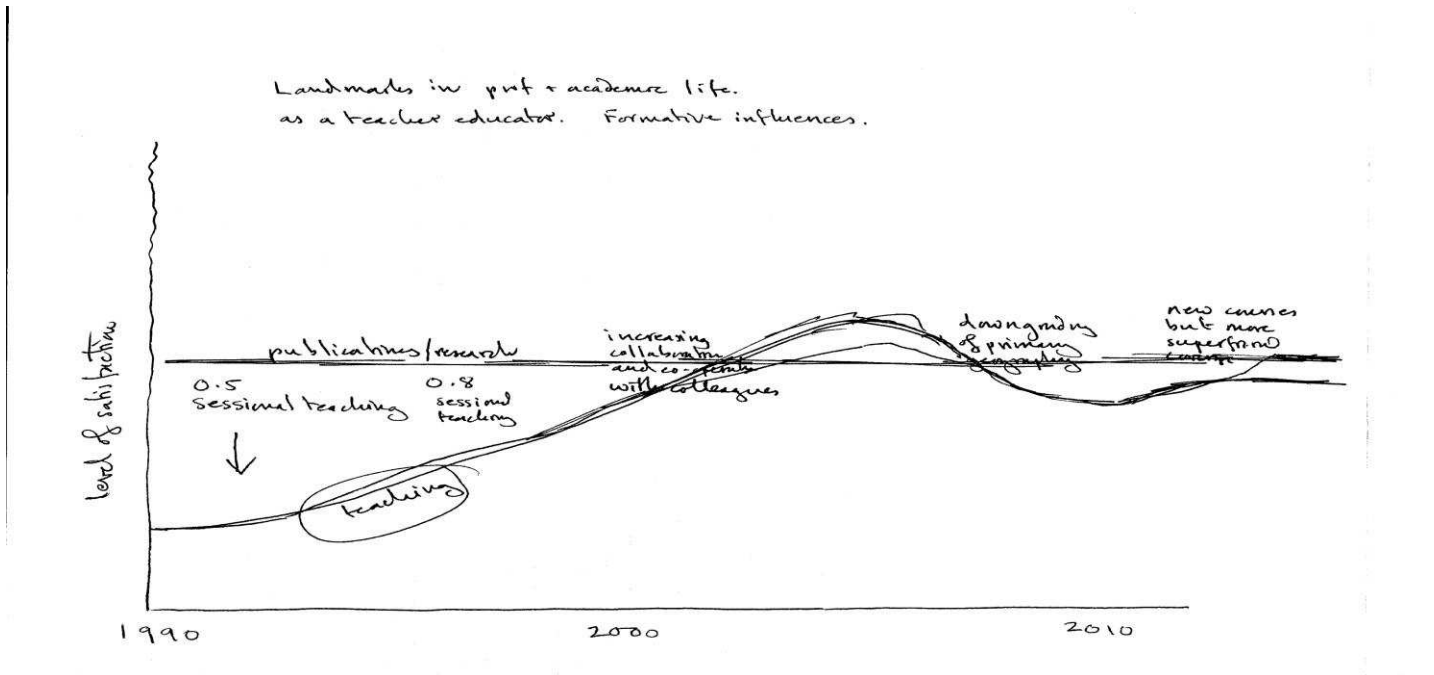 Landmarks in prof + academic life.
as a teacher educator. Formative influences.
level of satisfaction
publications/research
0.5
sessional teaching
0.8
sessional
teaching
teaching
increasing
collaboration
and co-operation
with colleagues
downgrading
of primary
geography
new courses
but more
superficial
coverage
1990
2000
2010